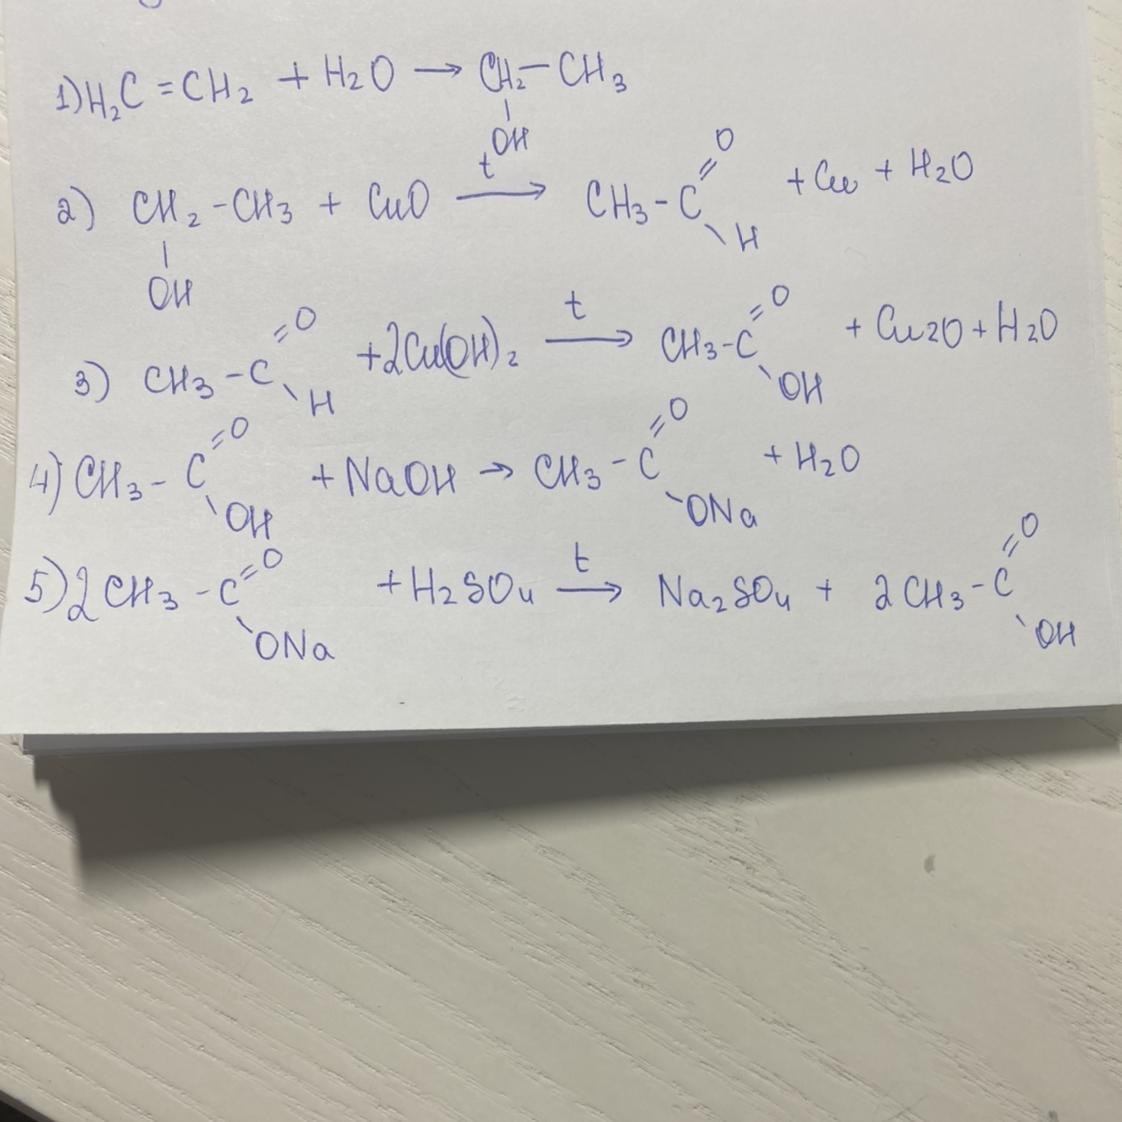 1) H₂C=CH₂ + H₂O → CH₂–CH₃
|
OH
2) CH₂–CH₃ + CuO →t CH₃–C(=O)–H + Cu + H₂O
|
OH
3) CH₃–C(=O)–H + 2Cu(OH)₂ →t CH₃–C(=O)–OH + Cu2O + H₂O
4) CH₃–C(=O)–OH + NaOH → CH₃–C(=O)–ONa + H₂O
5) 2CH₃–C(=O)–ONa + H₂SO₄ →t Na₂SO₄ + 2CH₃–C(=O)–OH